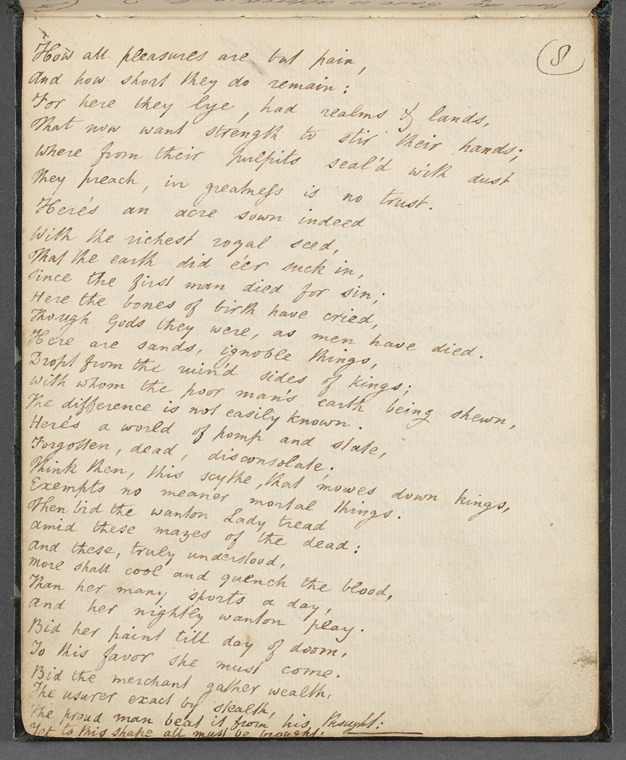 8
How all pleasures are but pain,
And how short they do remain:
For here they lye, had realms & lands,
That now want strength to stir their hands;
Where from their pulpits seal'd with dust
They preach, in greatness is no trust.
Here's an acre sown indeed
With the richest royal seed,
That the earth did e'er suck in,
Since the first man died for sin;
Here the bones of birth have cried,
Though Gods they were, as men have died.
Here are sands, ignoble things,
Dropt from the ruin'd sides of kings;
With whom the poor man's earth being shewn,
The difference is not easily known.
Here's a world of pomp and state,
Forgotten, dead, disconsolate.
Think then, this scythe, that mowes down kings,
Exempts no meaner mortal things.
Then bid the wanton Lady tread
Amid these mazes of the dead:
And these, truly understood,
More shall cool and quench the blood,
Than her many sports a day,
And her nightly wanton play.
Bid her paint till day of doom,
To this favor she must come.
Bid the merchant gather wealth,
The usurer exact by stealth,
The proud man beat it from his thought:
Yet to this shape all must be brought.